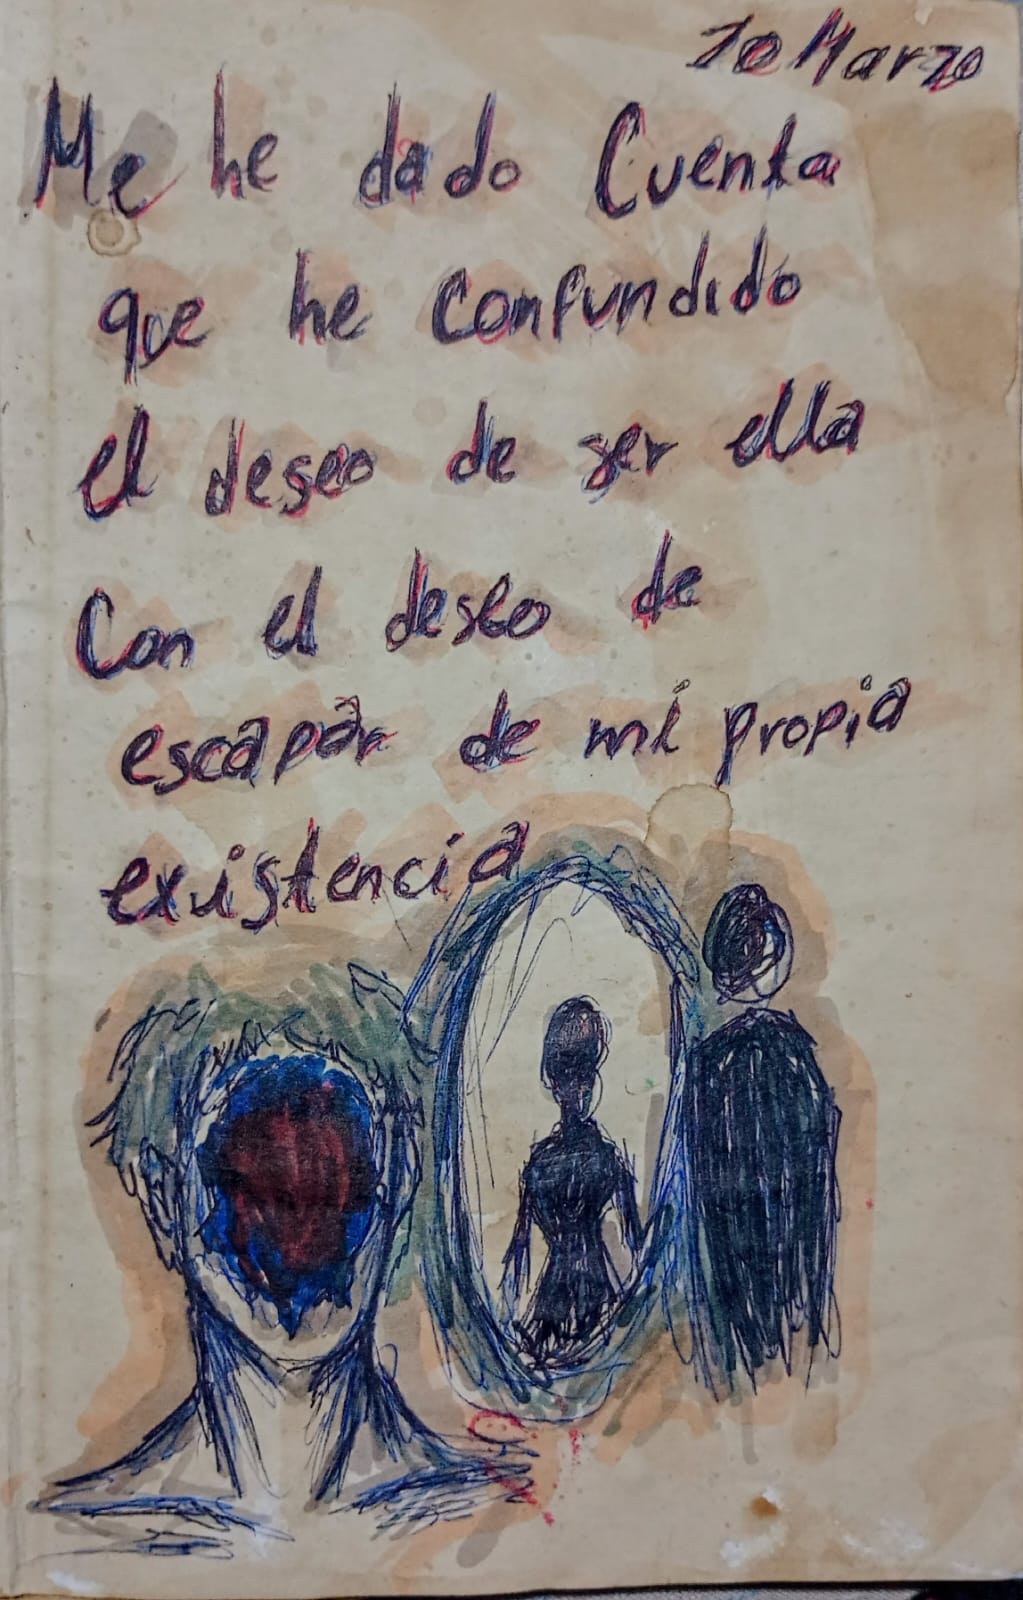 10 Marzo
Me he dado Cuenta
que he confundido
el deseo de ser ella
Con el deseo de
escapar de mi propia
existencia